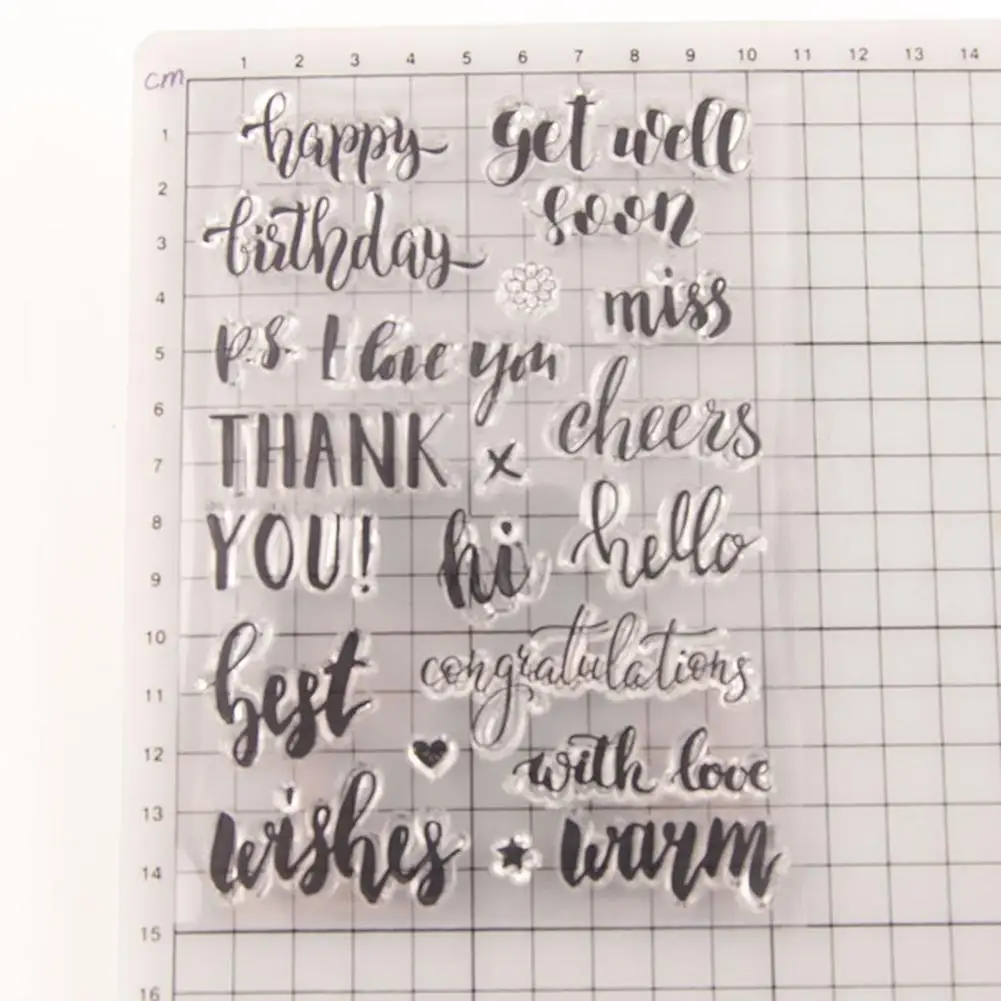 1 2 3 4 5 6 7 8 9 10 11 12 13 14
cm
1
2
3
4
5
6
7
8
9
10
11
12
13
14
15
16
happy
birthday
get well
soon
miss
p.s. I love you
cheers
THANK
YOU!
x
hi
hello
best
wishes
congratulations
with love
warm